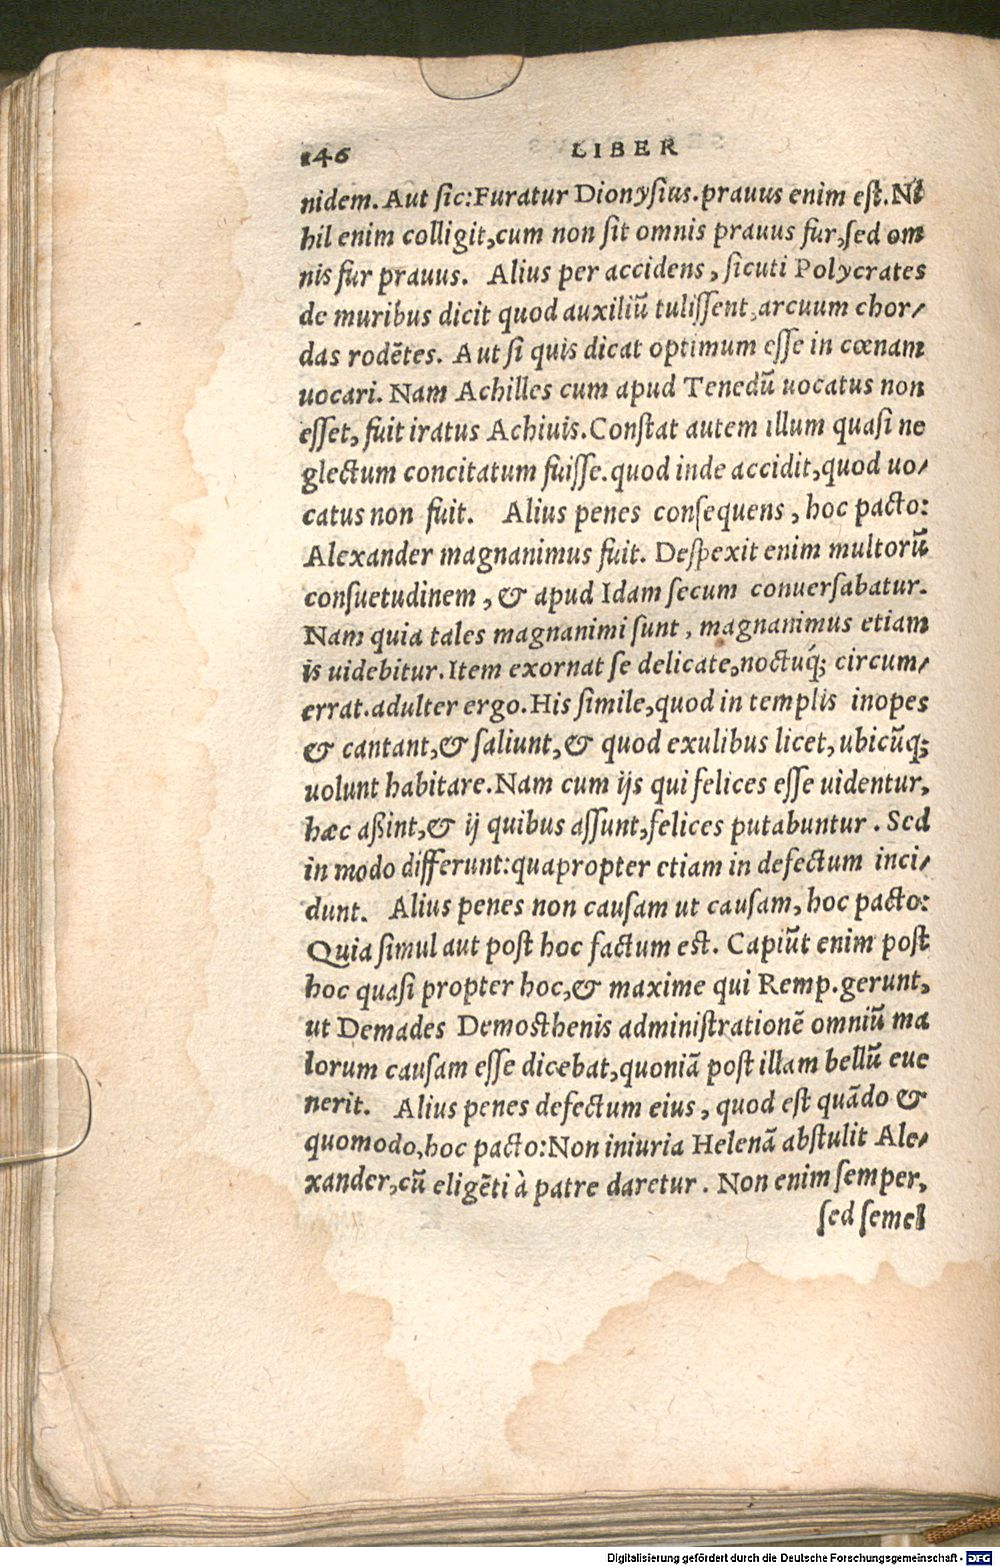 146 LIBER
nidem. Aut sic: Furatur Dionysius. prauus enim est. Ni
hil enim colligit, cum non sit omnis prauus fur, sed om
nis fur prauus. Alius per accidens, sicuti Polycrates
de muribus dicit quod auxiliū tulissent, arcuum chor/
das rodētes. Aut si quis dicat optimum esse in cœnam
uocari. Nam Achilles cum apud Tenedū uocatus non
esset, fuit iratus Achiuis. Constat autem illum quasi ne
glectum concitatum fuisse. quod inde accidit, quod uo/
catus non fuit. Alius penes consequens, hoc pacto:
Alexander magnanimus fuit. Despexit enim multorū
consuetudinem, & apud Idam secum conuersabatur.
Nam quia tales magnanimi sunt, magnanimus etiam
is uidebitur. Item exornat se delicate, noctuq́; circum/
errat. adulter ergo. His simile, quod in templis inopes
& cantant, & saliunt, & quod exulibus licet, ubicūq;
uolunt habitare. Nam cum ijs qui felices esse uidentur,
hæc aßint, & ij quibus assunt, felices putabuntur. Sed
in modo differunt: quapropter etiam in defectum inci/
dunt. Alius penes non causam ut causam, hoc pacto:
Quia simul aut post hoc factum est. Capiūt enim post
hoc quasi propter hoc, & maxime qui Remp. gerunt,
ut Demades Demosthenis administrationē omniū ma
lorum causam esse dicebat, quoniā post illam bellū eue
nerit. Alius penes defectum eius, quod est quādo &
quomodo, hoc pacto: Non iniuria Helenā abstulit Ale/
xander, cū eligēti à patre daretur. Non enim semper,
sed semel
Digitalisierung gefördert durch die Deutsche Forschungsgemeinschaft - DFG